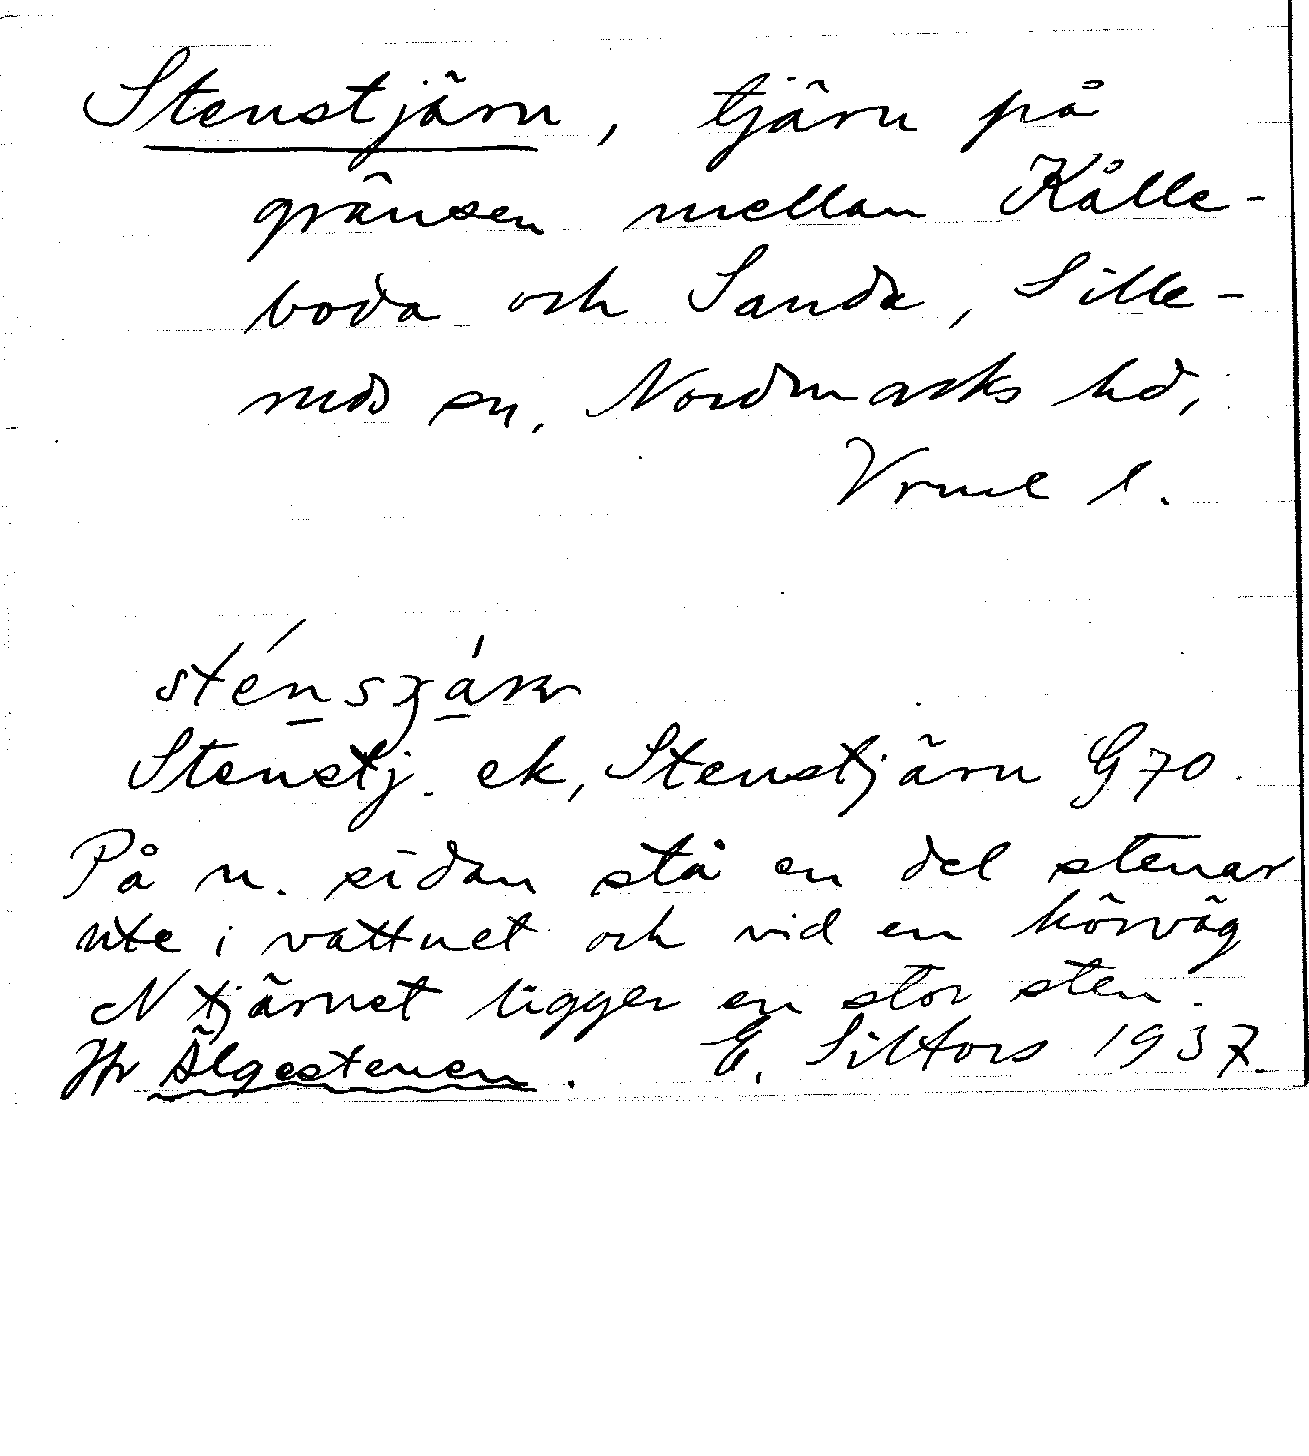 Stenstjärn, tjärn på
gränsen mellan Kålle-
boda och Sanda, Sille-
ruds sn, Nordmarks hd,
Vrml l.
Stenstj. ek, Stenstjärn G 70.
På n. sidan stå en del stenar
ute i vattnet och vid en körväg
N tjärnet ligger en stor sten.
Jfr Älgestenen. E. Siltors 1937.